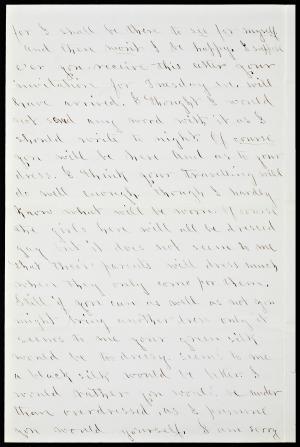 for I shall be there to see for myself
and there won't I be happy. I suppose
ever you receive this letter your
invitation for Tuesday eve. will
have arrived. I thought I would
not send any word with it as I
should write to night. Of course
you will be here. And as to your
dress. I think your travelling will
do well enough, though I hardly
know what will be worn. Of course
the girls here will all be dressed
gay but it does not seem to me
that their parents will dress much
when they only come for them.
Still if you can as well as not you
might bring another dress only it
seems to me your green silk
would be to dressy. seems to me
a black silk would be better. I
would rather you would be under
than overdressed, as I presume
you would yourself. I am sorry